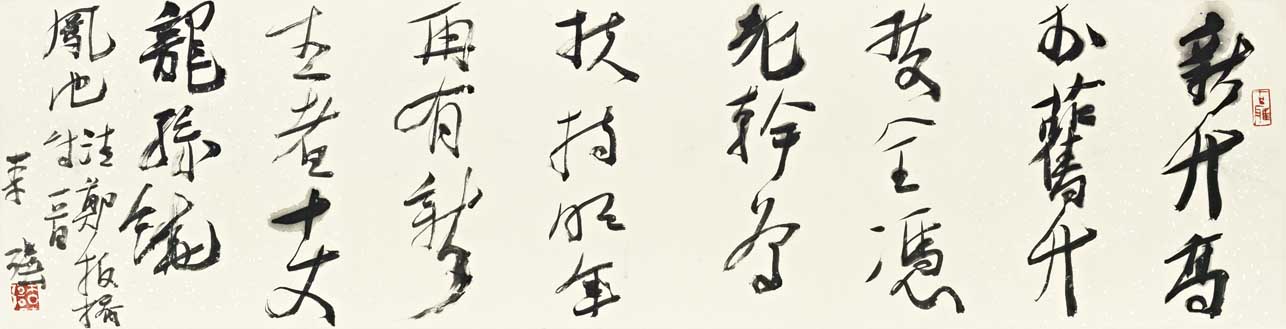 新竹高
於舊竹
枝全憑
老幹為
扶持明年
再有新
生者十丈
龍孫繞
鳳池
鄭板橋
詩一首